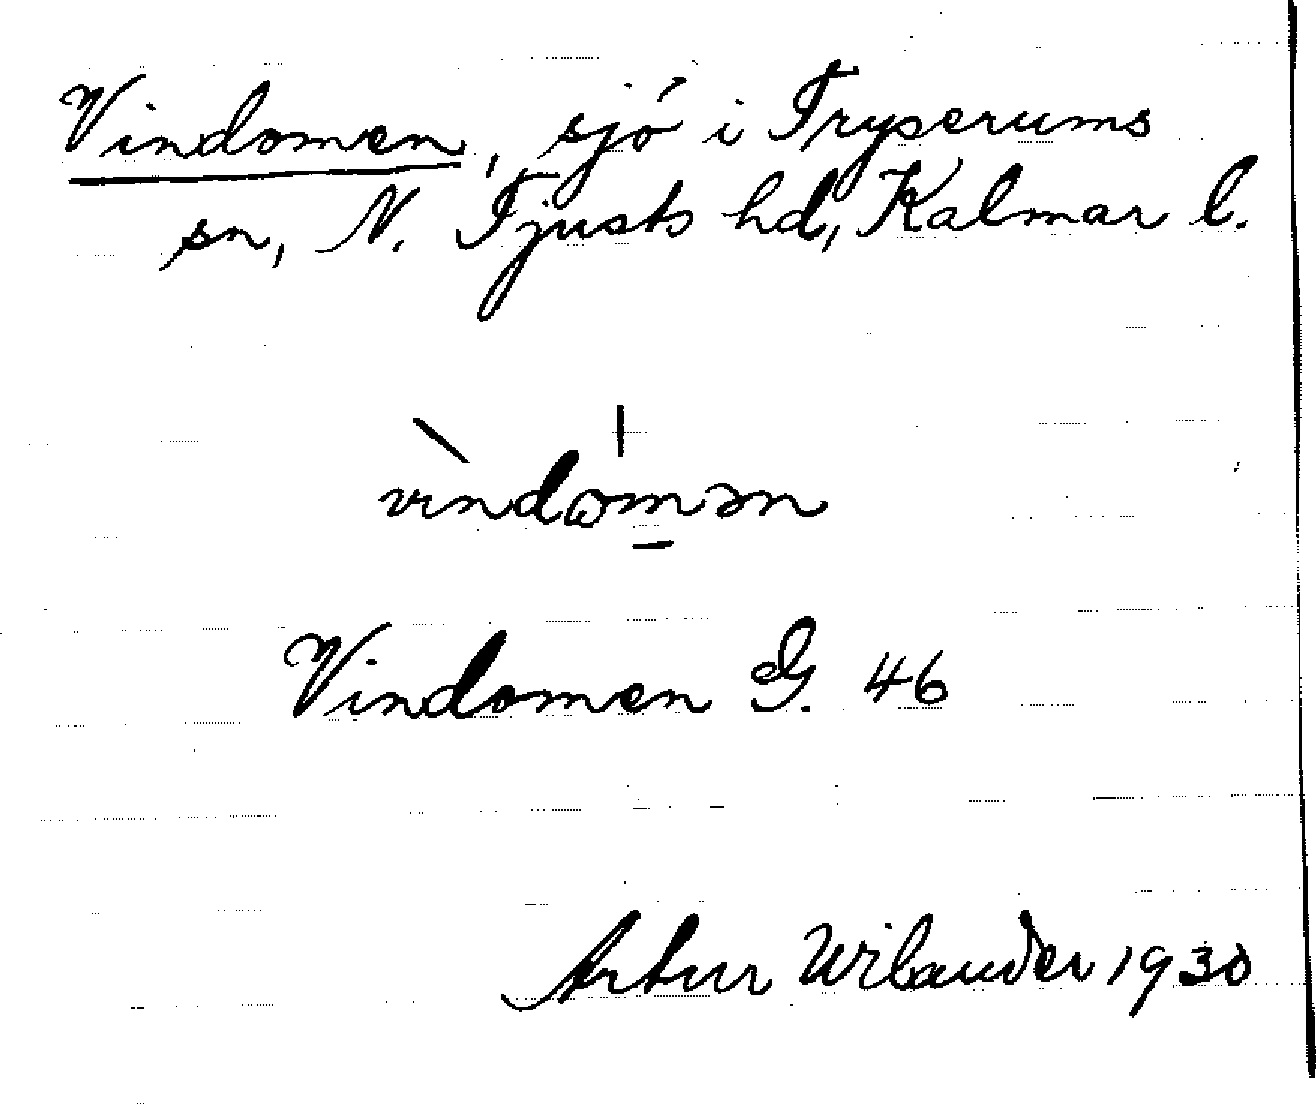 Vindomen, sjö i Tryserums
sn, N. Tjusts hd, Kalmar l.
vìndωmən
Vindomen G. 46
Artur Wilander 1930